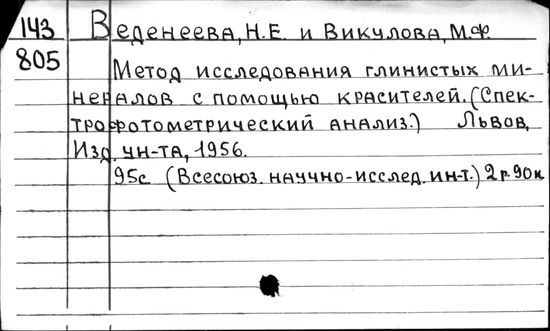 143 Веденеева, Н.Е. и Викулова, М.Ф.
805
Метод исследования глинистых ми-
нералов с помощью красителей. (Спек-
трофотометрический анализ.) Львов,
Изд. ун-та, 1956.
95с (Всесоюз. научно-исслед. ин-т.) 2р. 90к